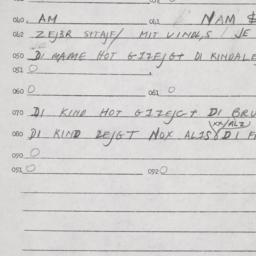 040. AM 041. NAM $
042 ZEJER SITAJF/ MIT VINDL,S / JE
050 DI MAME HOT GIZEJGT DI KINDALE
051 O
060 O 061 O
070 DI KIND HOT GIZEJGT DI BRU
XX/ALZ
080 DI KIND ZEJGT NOX ALTS DI F
090 O
091 O 092 O